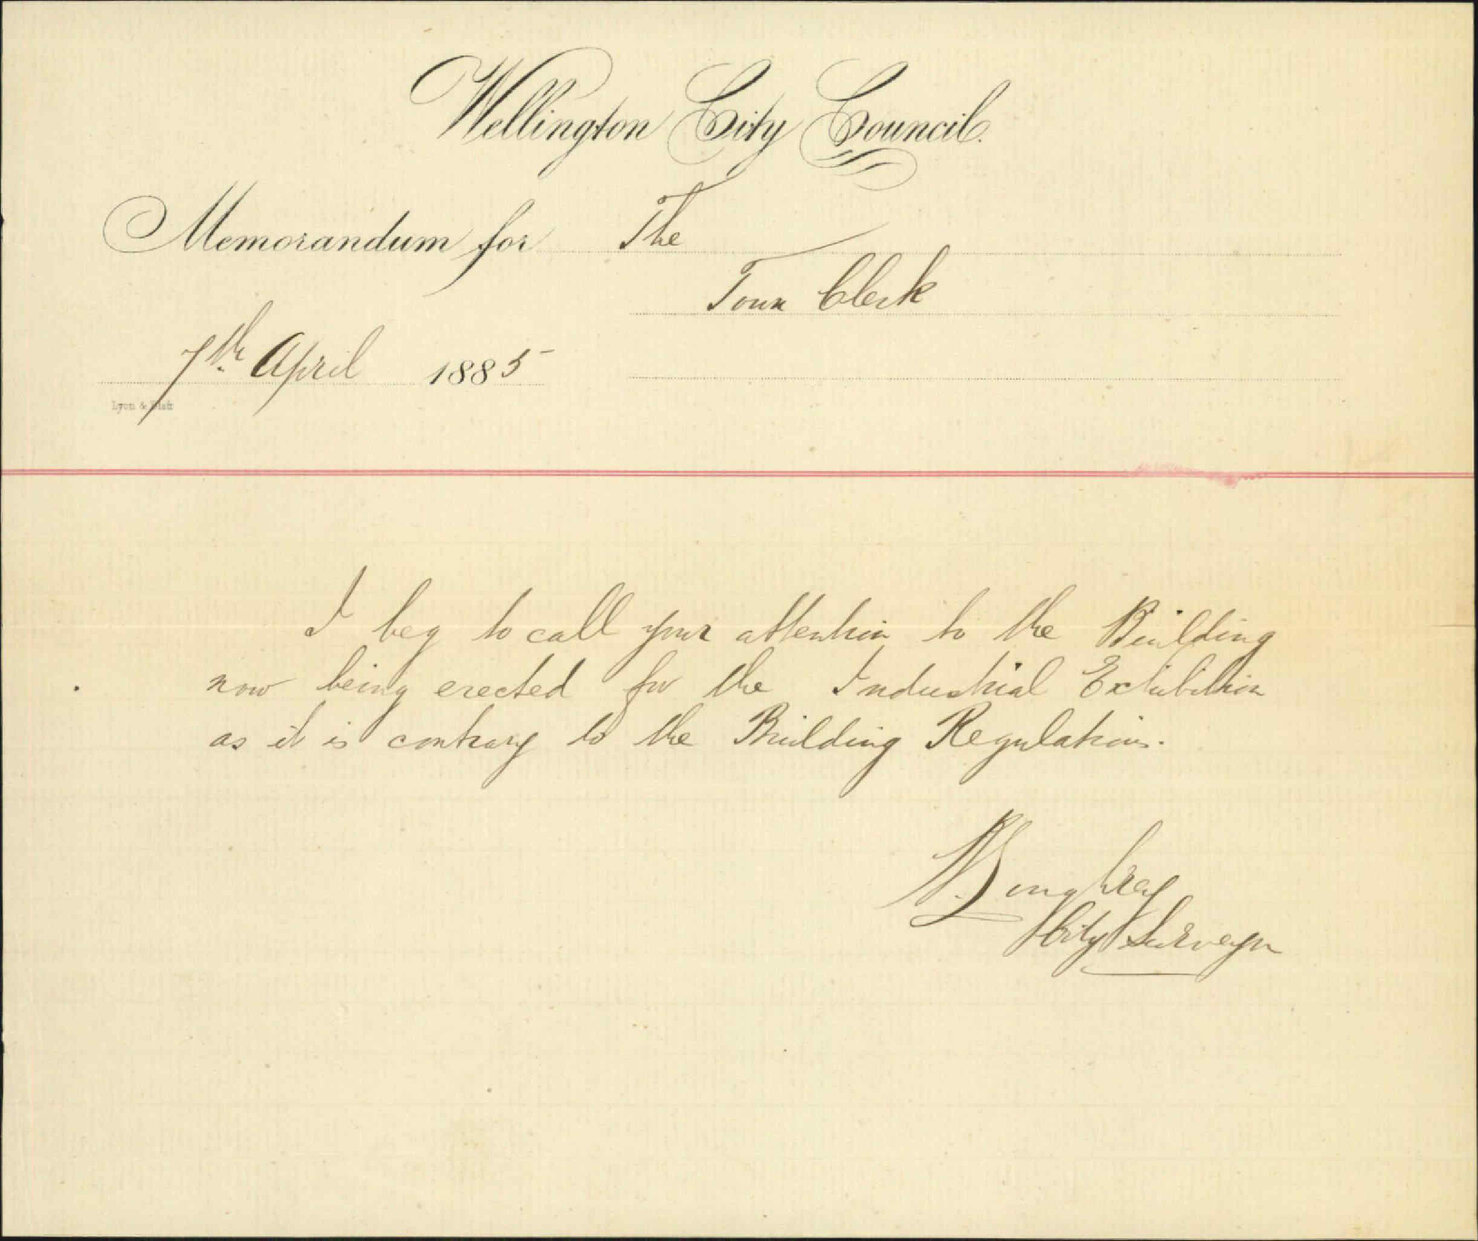 Wellington City Council.
Memorandum for The
Town Clerk
7th. April 1885
Lyon & Blair
I beg to call your attention to the Building
now being erected for the Industrial Exhibition
as it is contrary to the Building Regulations.
City Surveyor